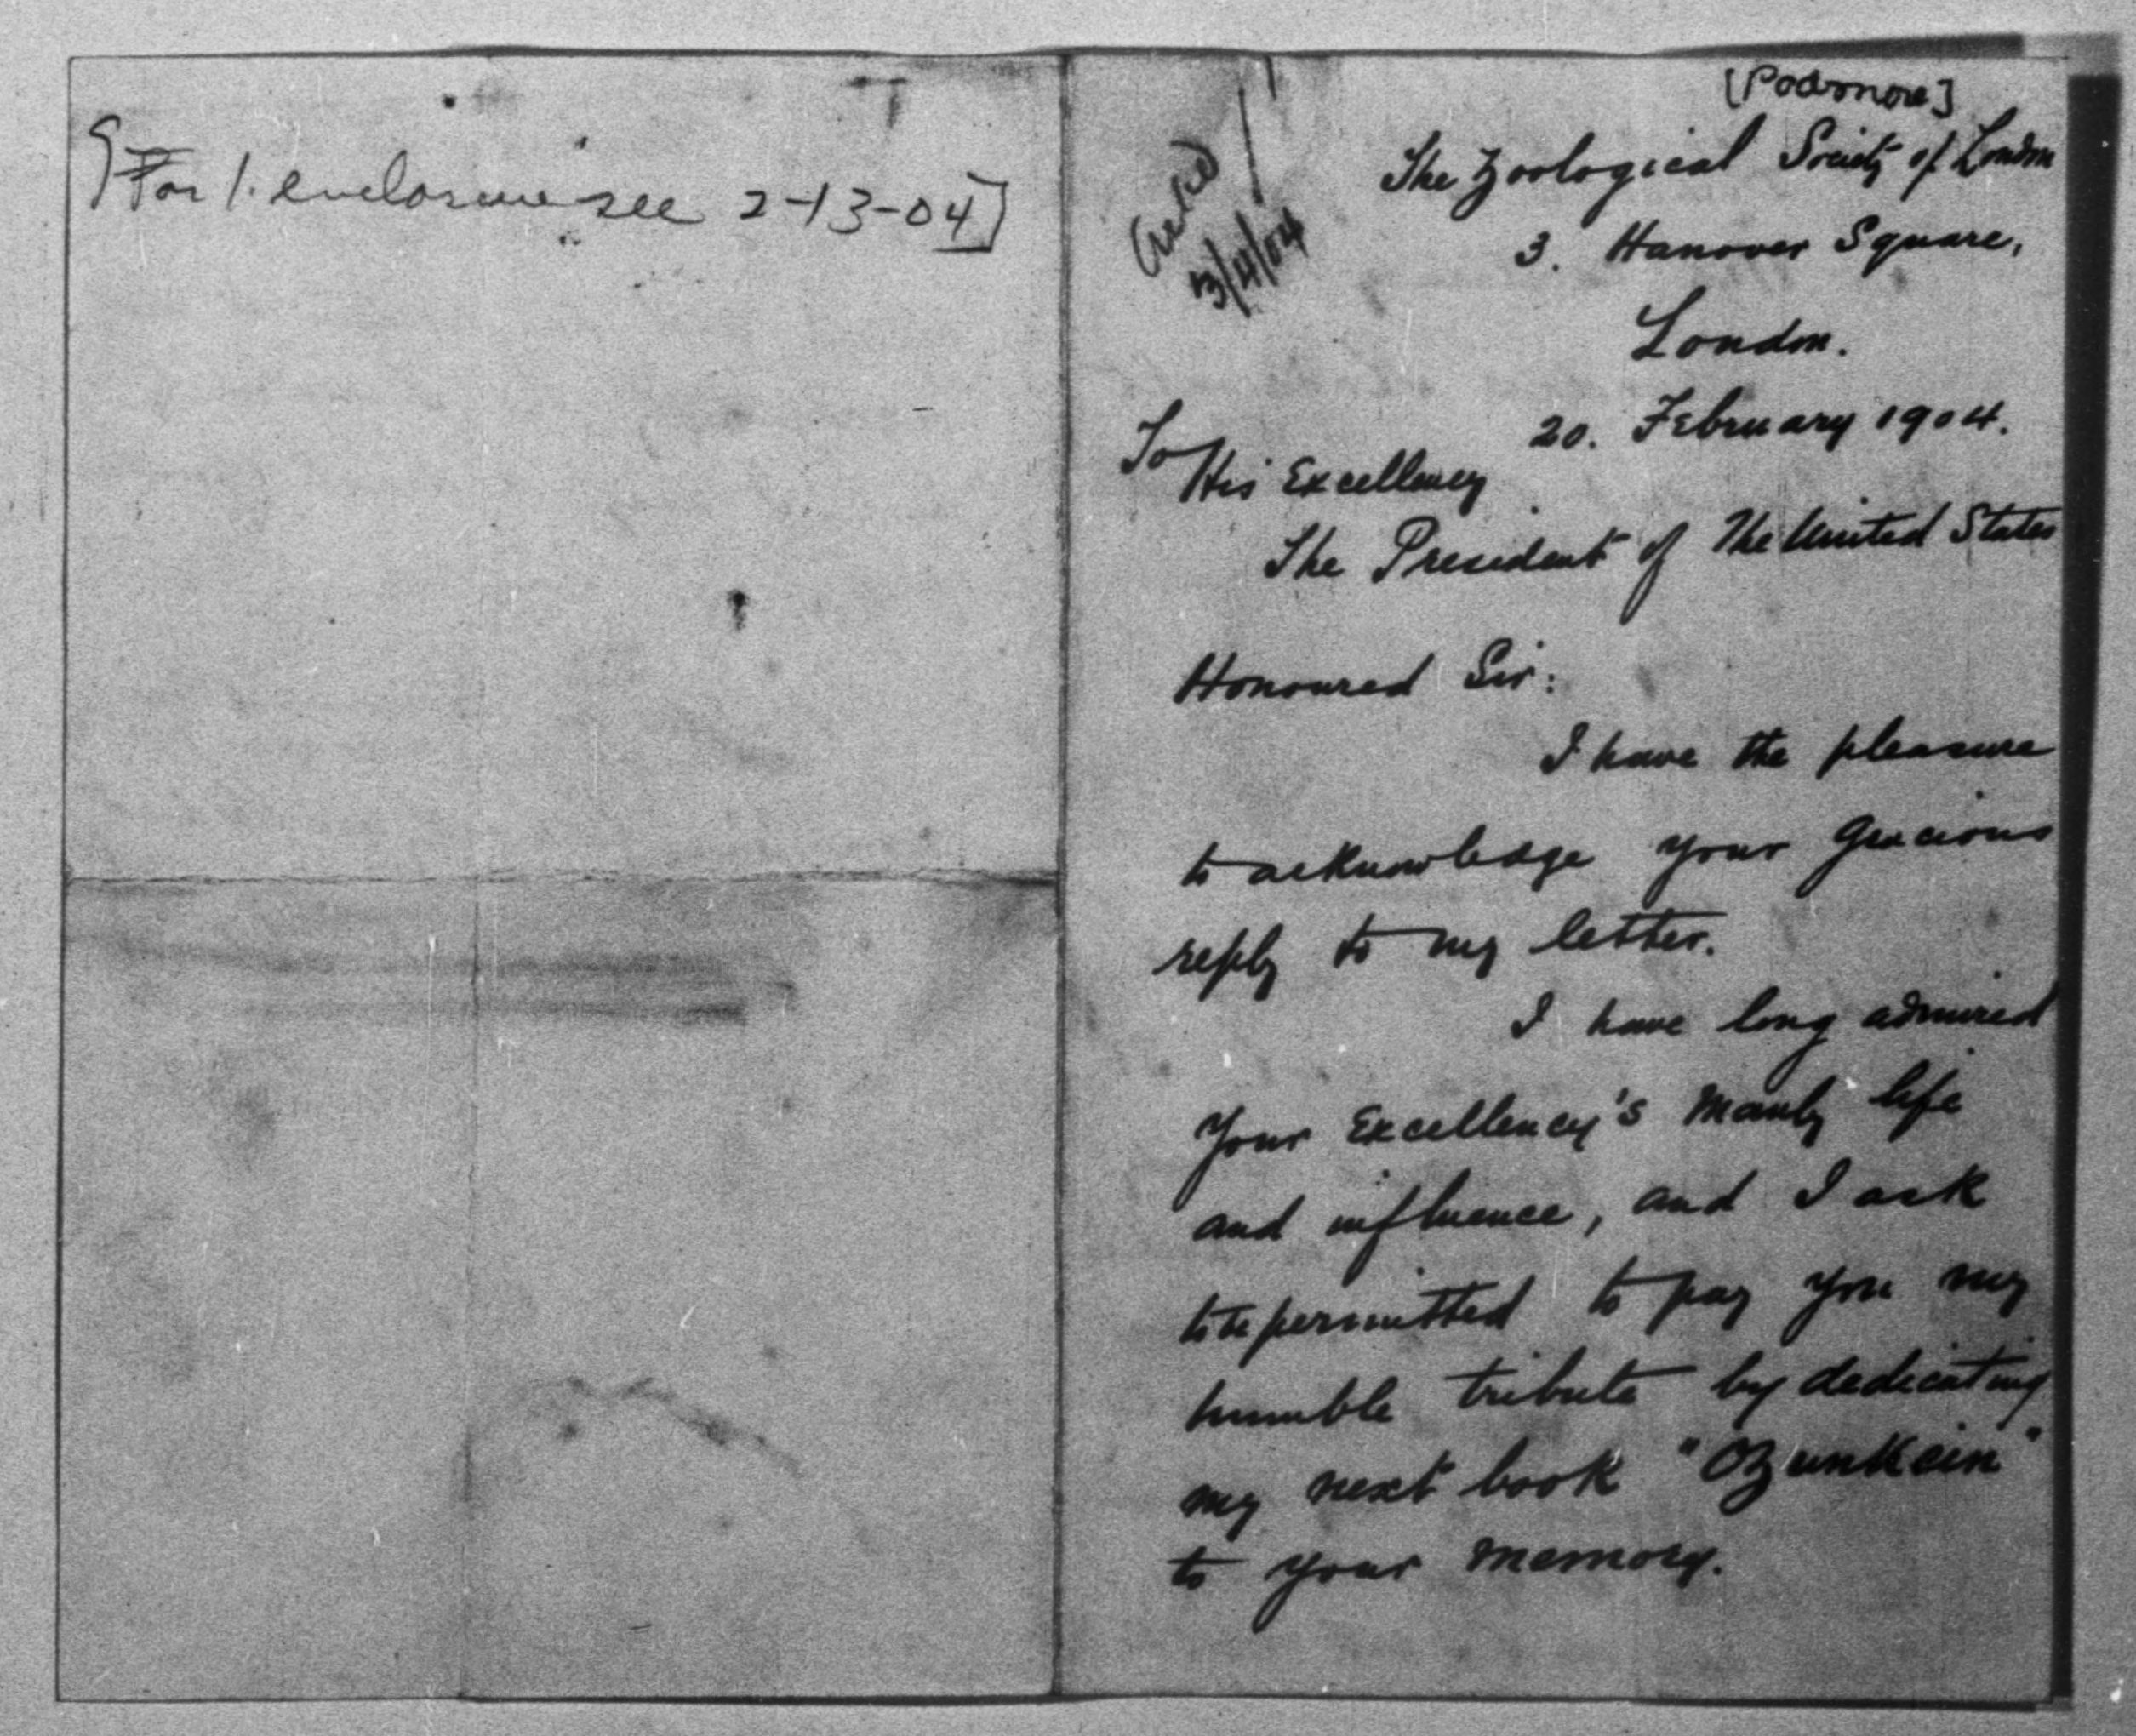 [For 1. enclosure see 2-13-04]
[Podmore]
Ackd
3/4/04
The Zoological Society of London
3. Hanover Square,
London.
20. February 1904.
To His Excellency
The President of The United States
Honoured Sir:
I have the pleasure
to acknowledge your gracious
reply to my letter.
I have long admired
Your Excellency's manly life
and influence, and I ask
to be permitted to pay you my
humble tribute by dedicating
my next book "Ozunkein"
to your memory.